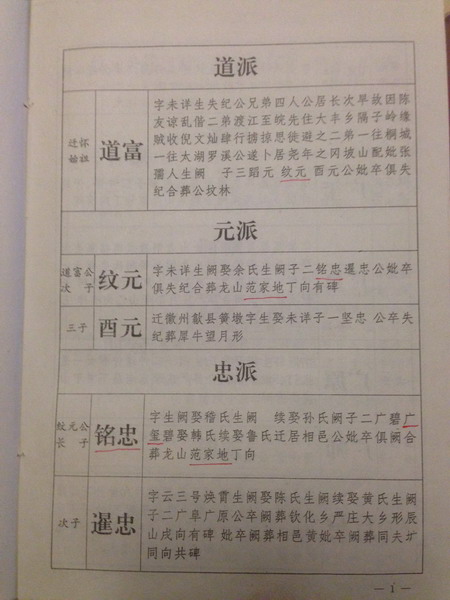 道派
迁怀
始祖
道富
字未详生失纪公兄弟四人公居长次早故因陈
友谅乱偕二弟渡江至皖先住大丰乡隔子岭缘
贼收倪文灿肆行掳掠思徙避之二弟一往桐城
一往太湖罗溪公遂卜居尧年之冈坡山配妣张
孺人生阙 子三韬元 纹元 酉元公妣卒俱失
纪合葬公坟林
元派
道富公
次子
纹元
字未详生阙娶余氏生阙子二铭忠暹忠公妣卒
俱失纪合葬龙山范家地丁向有碑
三子
酉元
迁徽州歙县篁墩字生娶未详子一坚忠 公卒失
纪葬犀牛望月形
忠派
纹元公
长子
铭忠
字生阙娶稽氏生阙 续娶孙氏阙子二广碧广
玺碧娶韩氏续娶鲁氏迁居相邑公妣卒俱阙合
葬龙山范家地丁向
次子
暹忠
字云三号焕霄生阙娶陈氏生阙续娶黄氏生阙
子二广阜广原公卒阙葬钦化乡严庄大乡形辰
山戌向有碑 妣卒阙葬相邑黄妣卒阙葬同夫圹
同向共碑
— 1 —